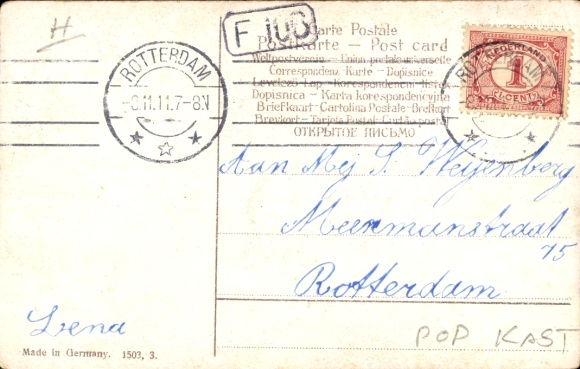 H
F 106
Carte Postale
Postkarte – Post card
Weltpostverein – Union postale universelle
Correspondenz Karte – Dopisnice
Levelező Lap – Korespondencni listek
Dopisnica – Karta korespondencyjna
Briefkaart – Cartolina Postale – Brefkort
Brevkort – Tarjeta Postal – Cartão postal
ОТКРЫТОЕ ПИСЬМО
ROTTERDAM
11.11.7-8N
NEDERLAND
1
CENT
ROTTERDAM
Aan Mej S. Weyenberg
Meermanstraat
75
Rotterdam
Lena
POP KAST
Made in Germany. 1503, 3.